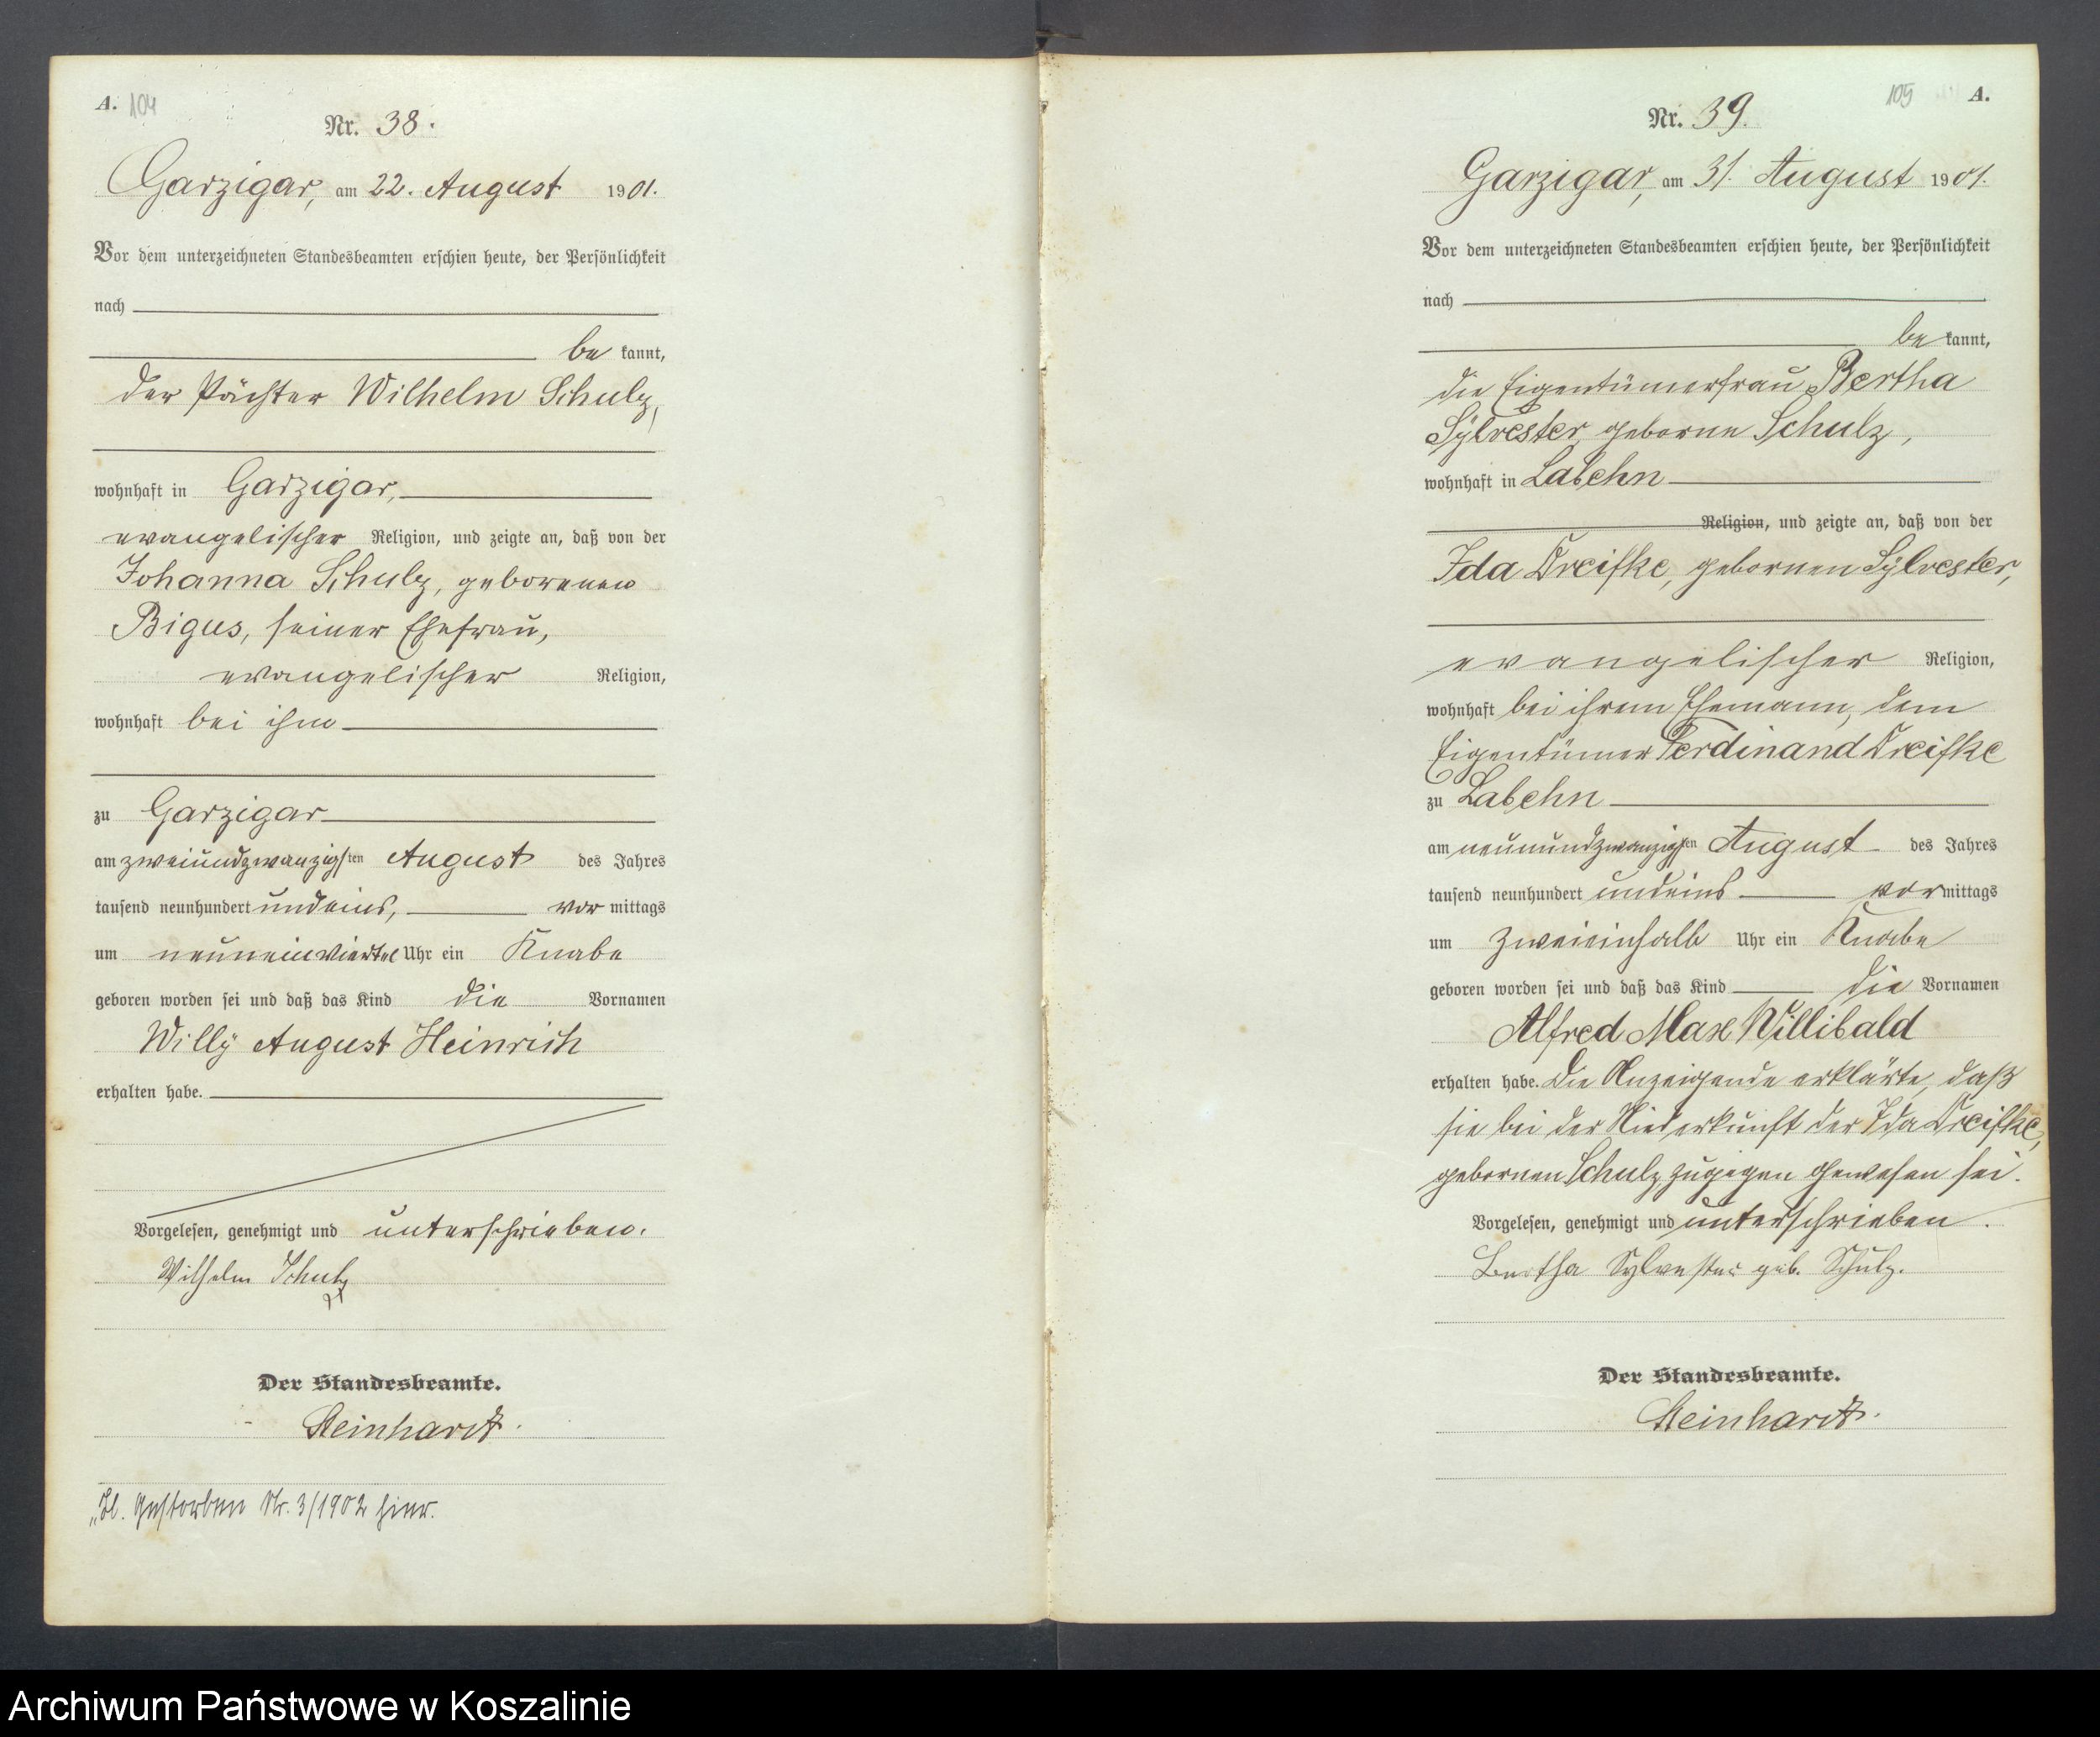 A. 104
Nr. 38.
Garzigar, am 22. August 1901.
Vor dem unterzeichneten Standesbeamten erschien heute, der Persönlichkeit
nach
be kannt,
der Pächter Wilhelm Schulz,
wohnhaft in Garzigar,
evangelischer Religion, und zeigte an, daß von der
Johanna Schulz, geborenen
Bigus, seiner Ehefrau,
evangelischer Religion,
wohnhaft bei ihm
zu Garzigar
am zweiundzwanzigsten August des Jahres
tausend neunhundert undeins, vor mittags
um neuneinviertel Uhr ein Knabe
geboren worden sei und daß das Kind die Vornamen
Willy August Heinrich
erhalten habe.
Vorgelesen, genehmigt und unterschrieben.
Wilhelm Schulz
Der Standesbeamte.
Steinhardt.
Gestorben Nr. 3/1902 hier.
105 A.
Nr. 39.
Garzigar, am 31. August 1901.
Vor dem unterzeichneten Standesbeamten erschien heute, der Persönlichkeit
nach
be kannt,
die Eigentümerfrau Bertha
Sylvester, geborne Schulz,
wohnhaft in Labehn
Religion, und zeigte an, daß von der
Ida Dreifke, gebornen Sylvester,
evangelischer Religion,
wohnhaft bei ihrem Ehemann, dem
Eigentümer Ferdinand Dreifke
zu Labehn
am neunundzwanzigsten August des Jahres
tausend neunhundert undeins vormittags
um zweieinhalb Uhr ein Knabe
geboren worden sei und daß das Kind die Vornamen
Alfred Max Willibald
erhalten habe. Die Anzeigende erklärte, daß
sie bei der Niederkunft der Ida Dreifke,
gebornen Schulz, zugegen gewesen sei.
Vorgelesen, genehmigt und unterschrieben.
Bertha Sylvester geb. Schulz.
Der Standesbeamte.
Steinhardt.
Archiwum Państwowe w Koszalinie